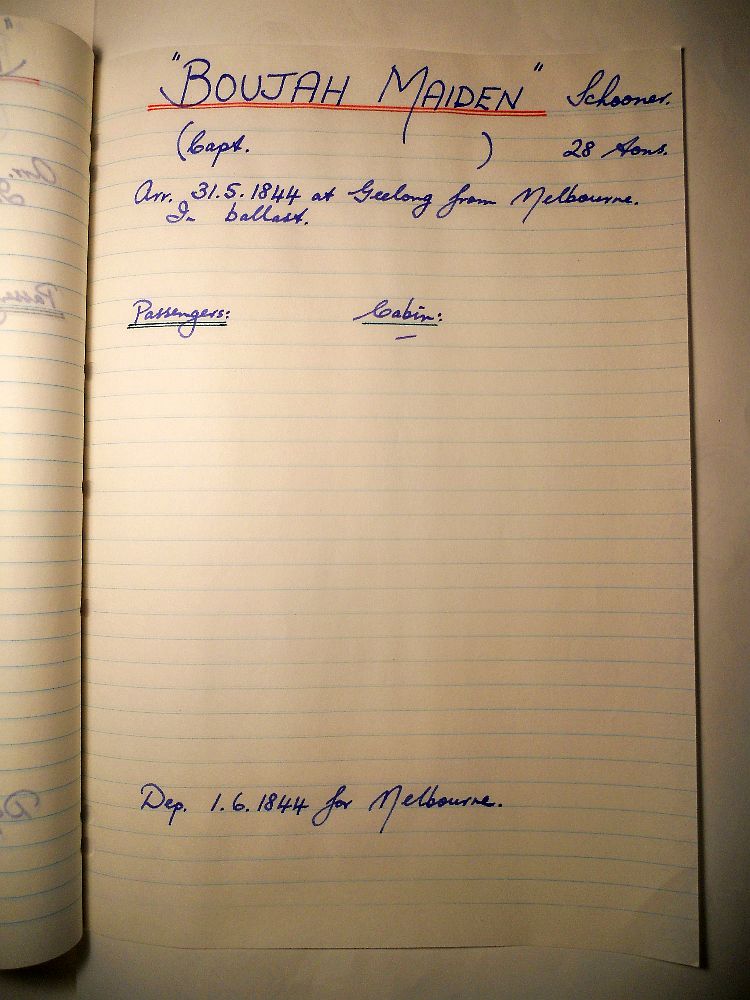 "BOUJAH MAIDEN" Schooner.
(Capt. ) 28 Tons.
Arr. 31.5.1844 at Geelong from Melbourne.
In ballast.
Passengers: Cabin:
—
Dep. 1.6.1844 for Melbourne.